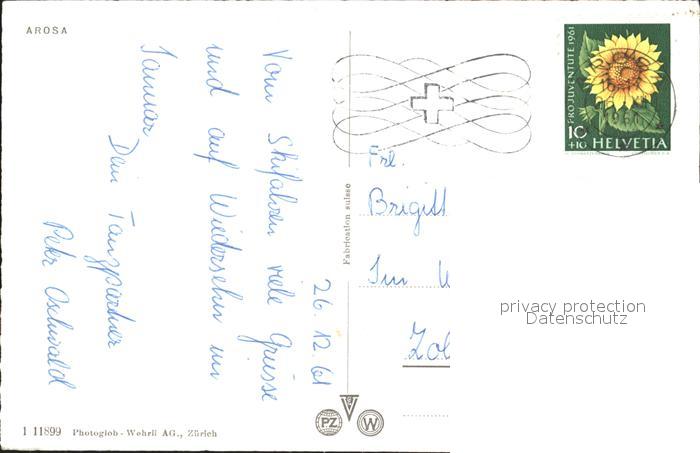 AROSA
26. 12. 61
Vom Skifahren viele Grüsse
und auf Wiedersehn im
Januar
Dein Tanzpartner
Peter Oschwald
Fabrication suisse
PRO JUVENTUTE 1961
10
+10 HELVETIA
Frl.
Brigitt
Im W
Zol
privacy protection
Datenschutz
PZ W
1 11899 Photoglob-Wehrli AG., Zürich